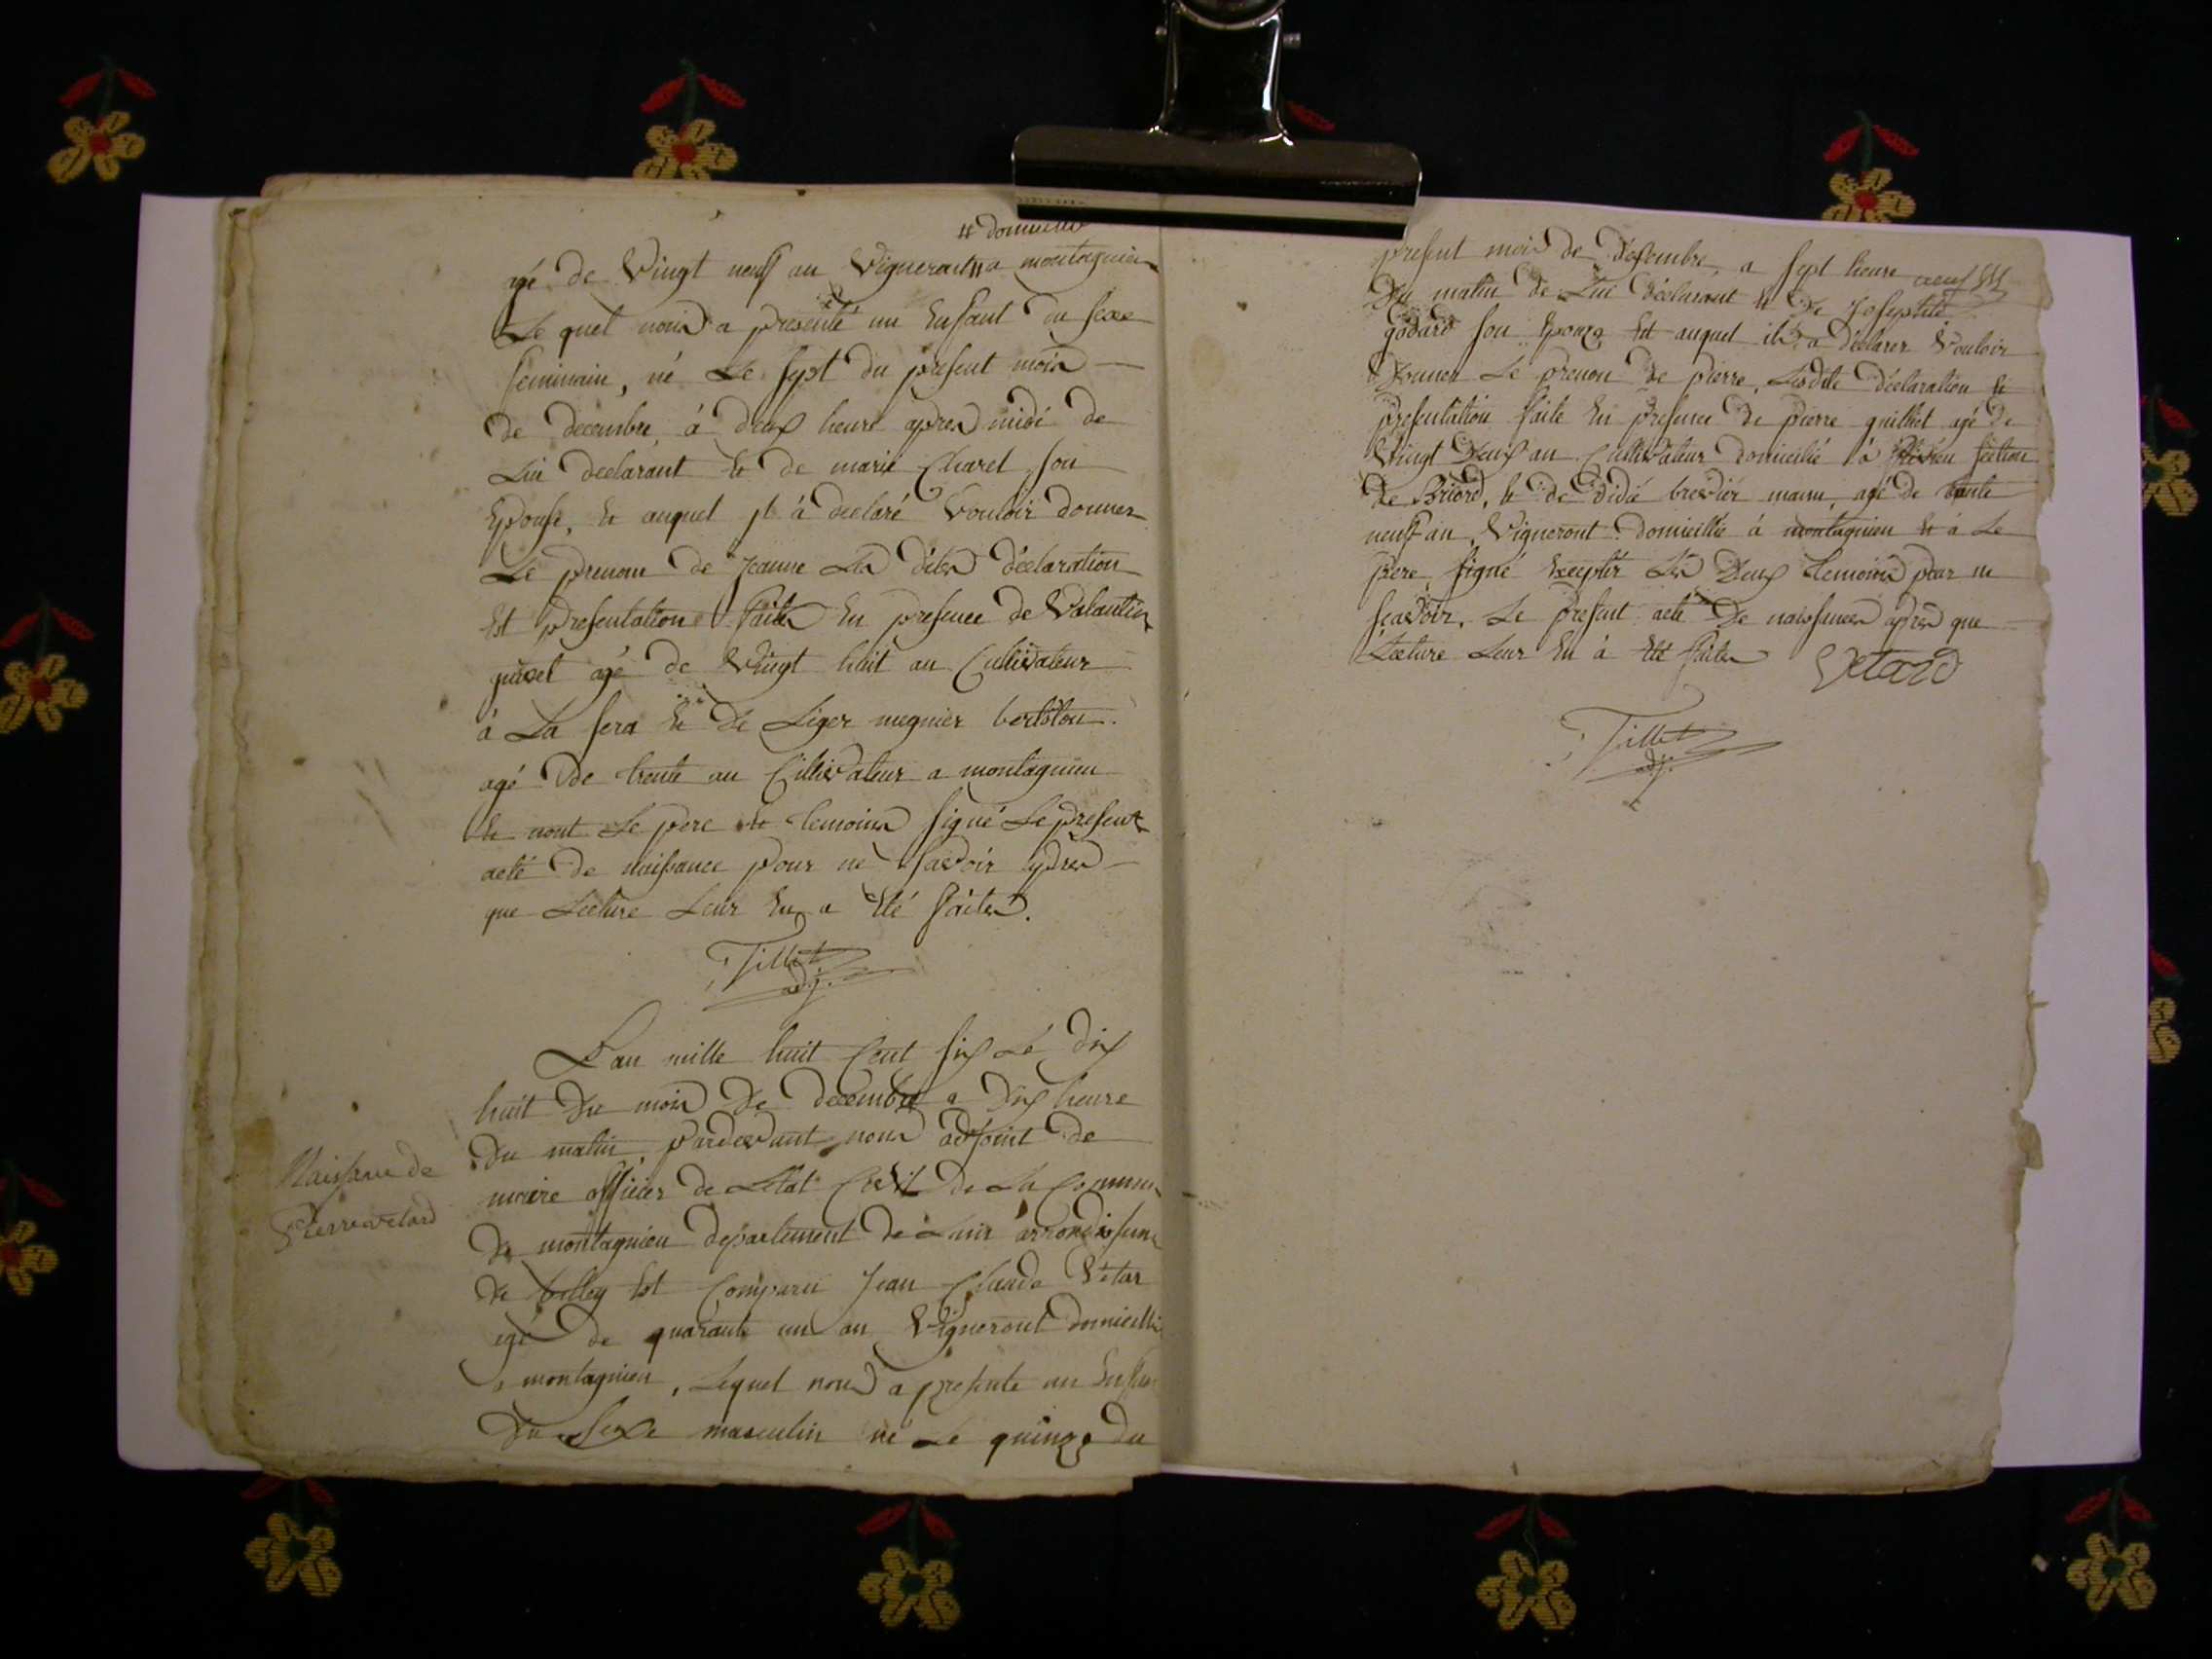 # domicilié
agé de Vingt neuf an Vigneront # a montagnieu
Le quel nous a presenté un Enfant du sexe
feminain, né Le sept du present mois
de decembre, à deux heure apres midi de
Lui declarant Et de marie Charel son
Epouse, Et auquel il à declaré Vouloir donner
Le prenom de jeanne Les dites déclaration
Et presentatione faites En presence de Valantin
guivet agé de Vingt huit an Cultivateur
à La sera Et De Liger mugnier bertolon.
agé De trente an Cultivateur a montagnieu
Et nont Le pere Et temoins signé Le present
acte de naissance pour ne savoir apres
que Lecture Leur En a Eté faites.
Tillet
adj.
Naissance de
Pierre vetard
Lan mille huit Cent six Le dix
huit Du mois De decembre a dix heure
Du matin, pardevant nous adjoint de
maire officier de Létat Civil De La Commun
De montagnieu departement de Lain arrondissem
De belley Est Comparu Jean Claude Vetar
agé De quarante un an Vigneront domicillié
a montagnieu, Lequel nous a presente un Enfan
Du Sexe masculin né Le quinze Du
present mois de Desembre, a sept heure neuf
Du matin de Lui déclarant Et De Josephte
godard son Epouze Et auquel il à déclarer Vouloir
Donner Le prenom de pierre, Lesdite déclaration Et
presentation faite En presence De pierre guillet agé De
Vingt Deux an Cultivateur domicilié à section
De Briord, Et De Didié brevdier manu, agé De trente
neuf an, Vigneront domicillié à montagnieu Et à Le
pere, signé Excepter Les Deux temoins pour ne
scavoir. Le present acte De naissances apres que
Lecture Leur En à Eté faites Vetard
Tillet
adj.